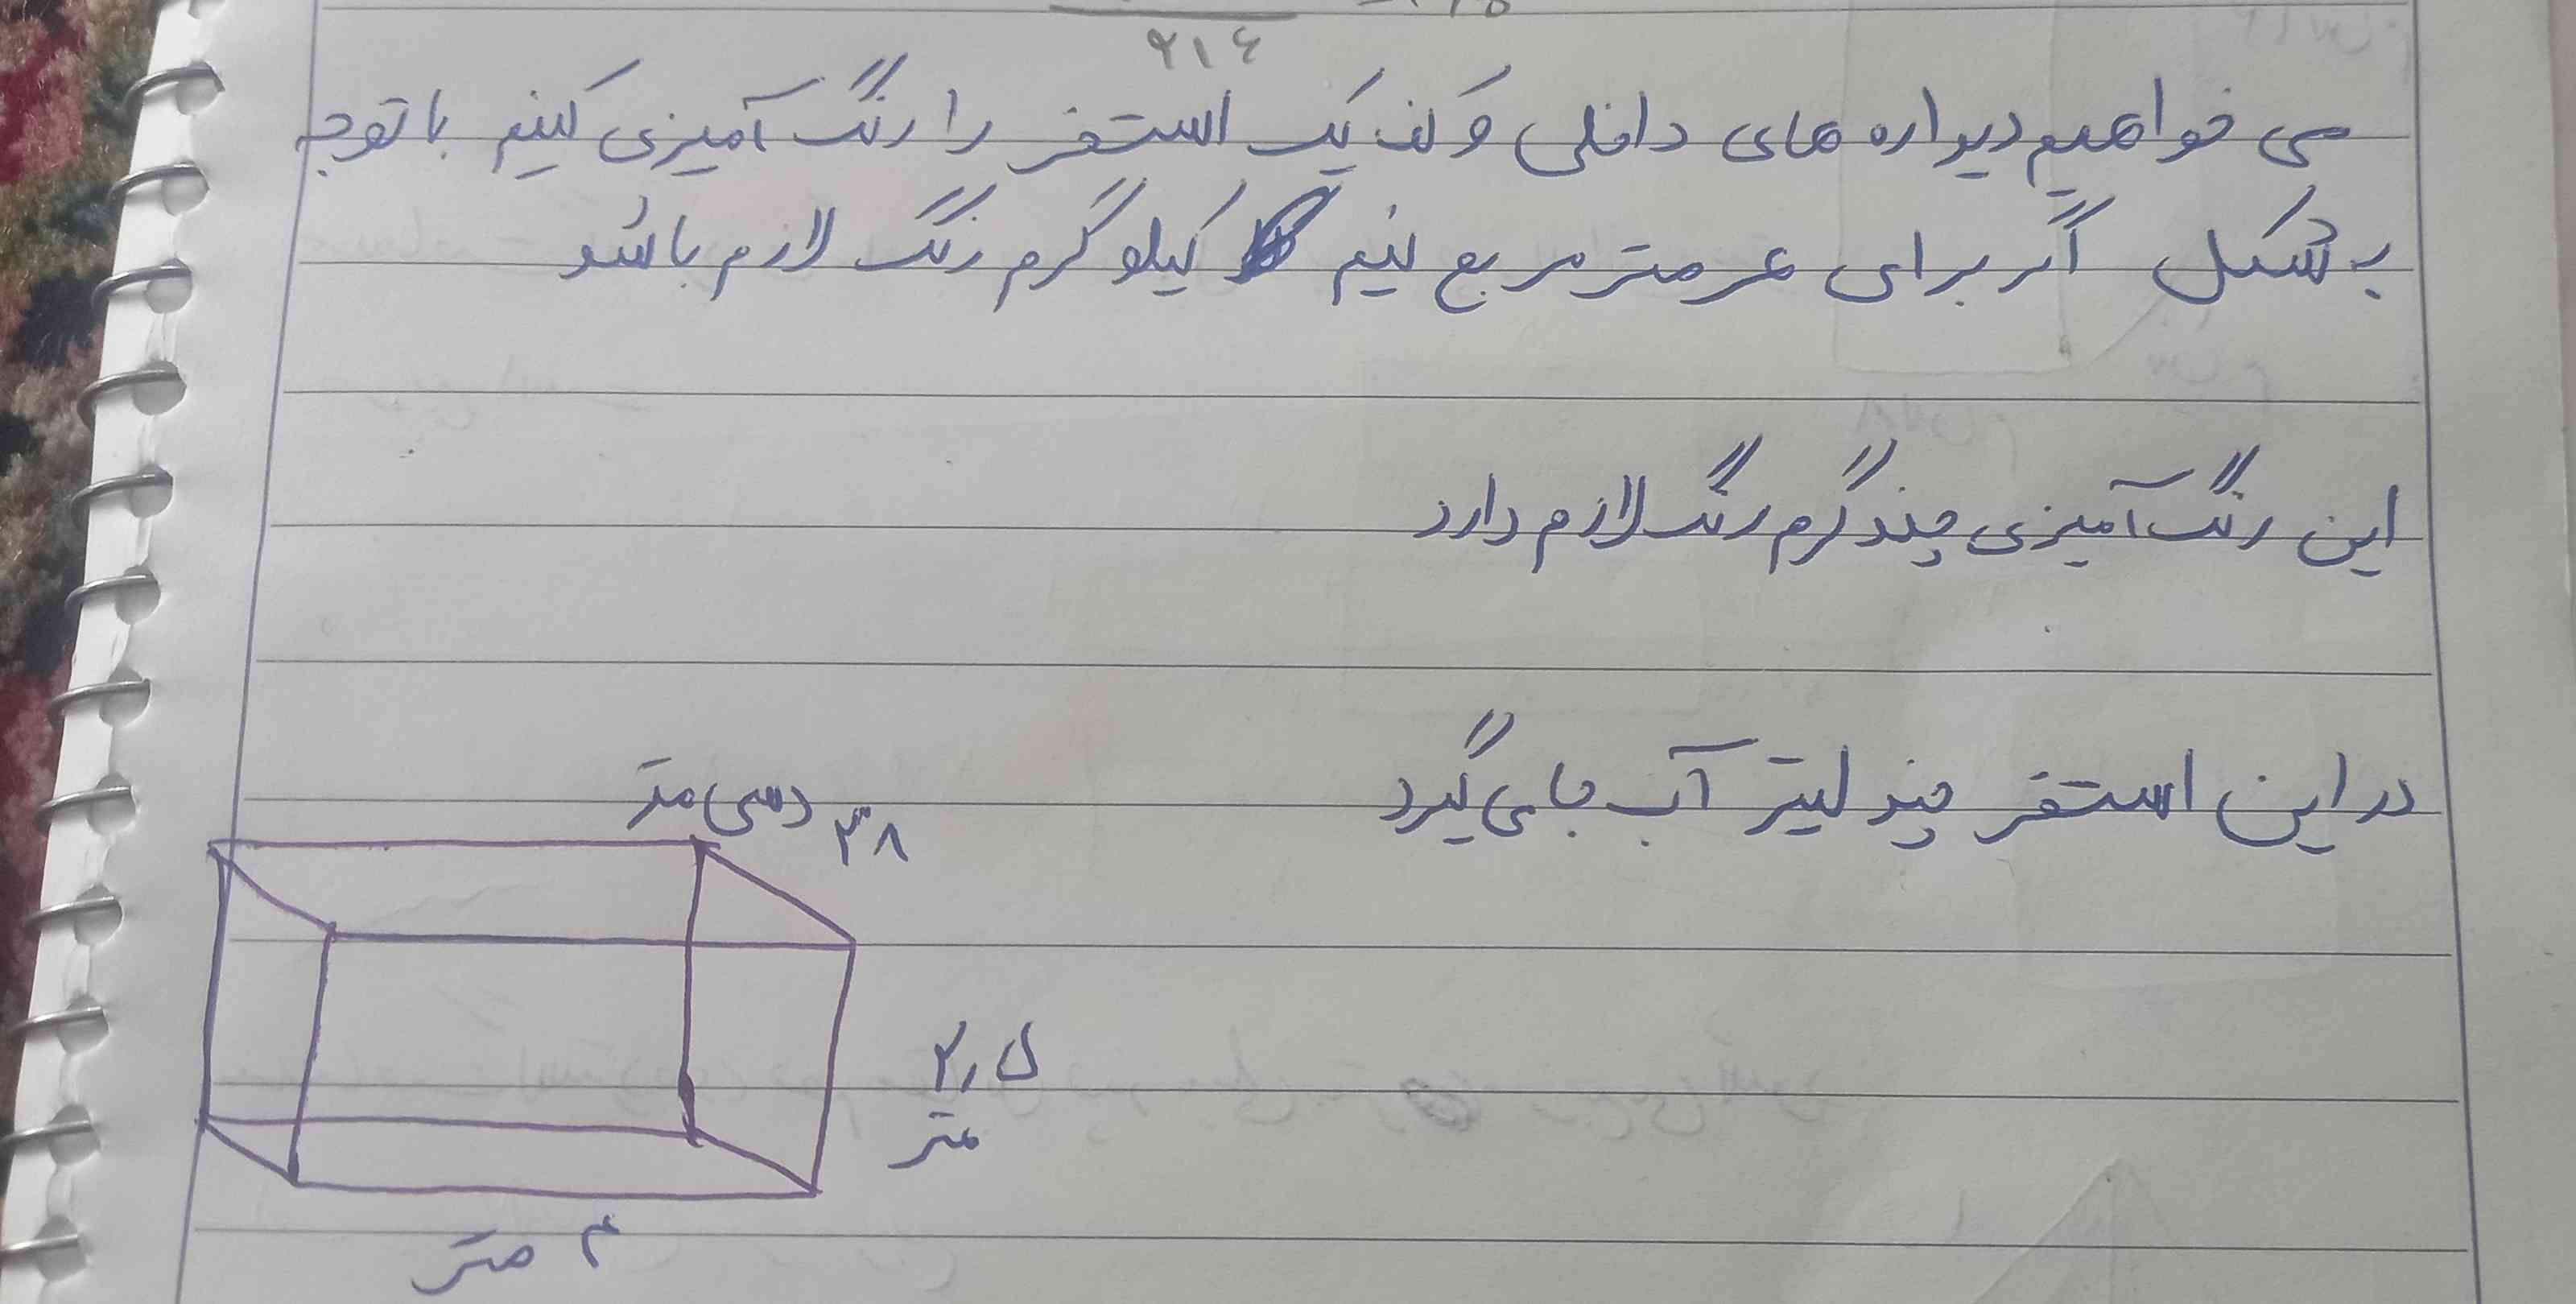 ۲۱٤
می خواهیم دیواره های داخلی و کف یک استخر را رنگ آمیزی کنیم با توجه
به شکل اگر برای هر متر مربع نیم کیلو گرم رنگ لازم باشد
این رنگ آمیزی چند گرم رنگ لازم دارد
در این استخر چند لیتر آب جای گیرد
۳۸ دسی متر
۲٫۵
متر
۴ متر